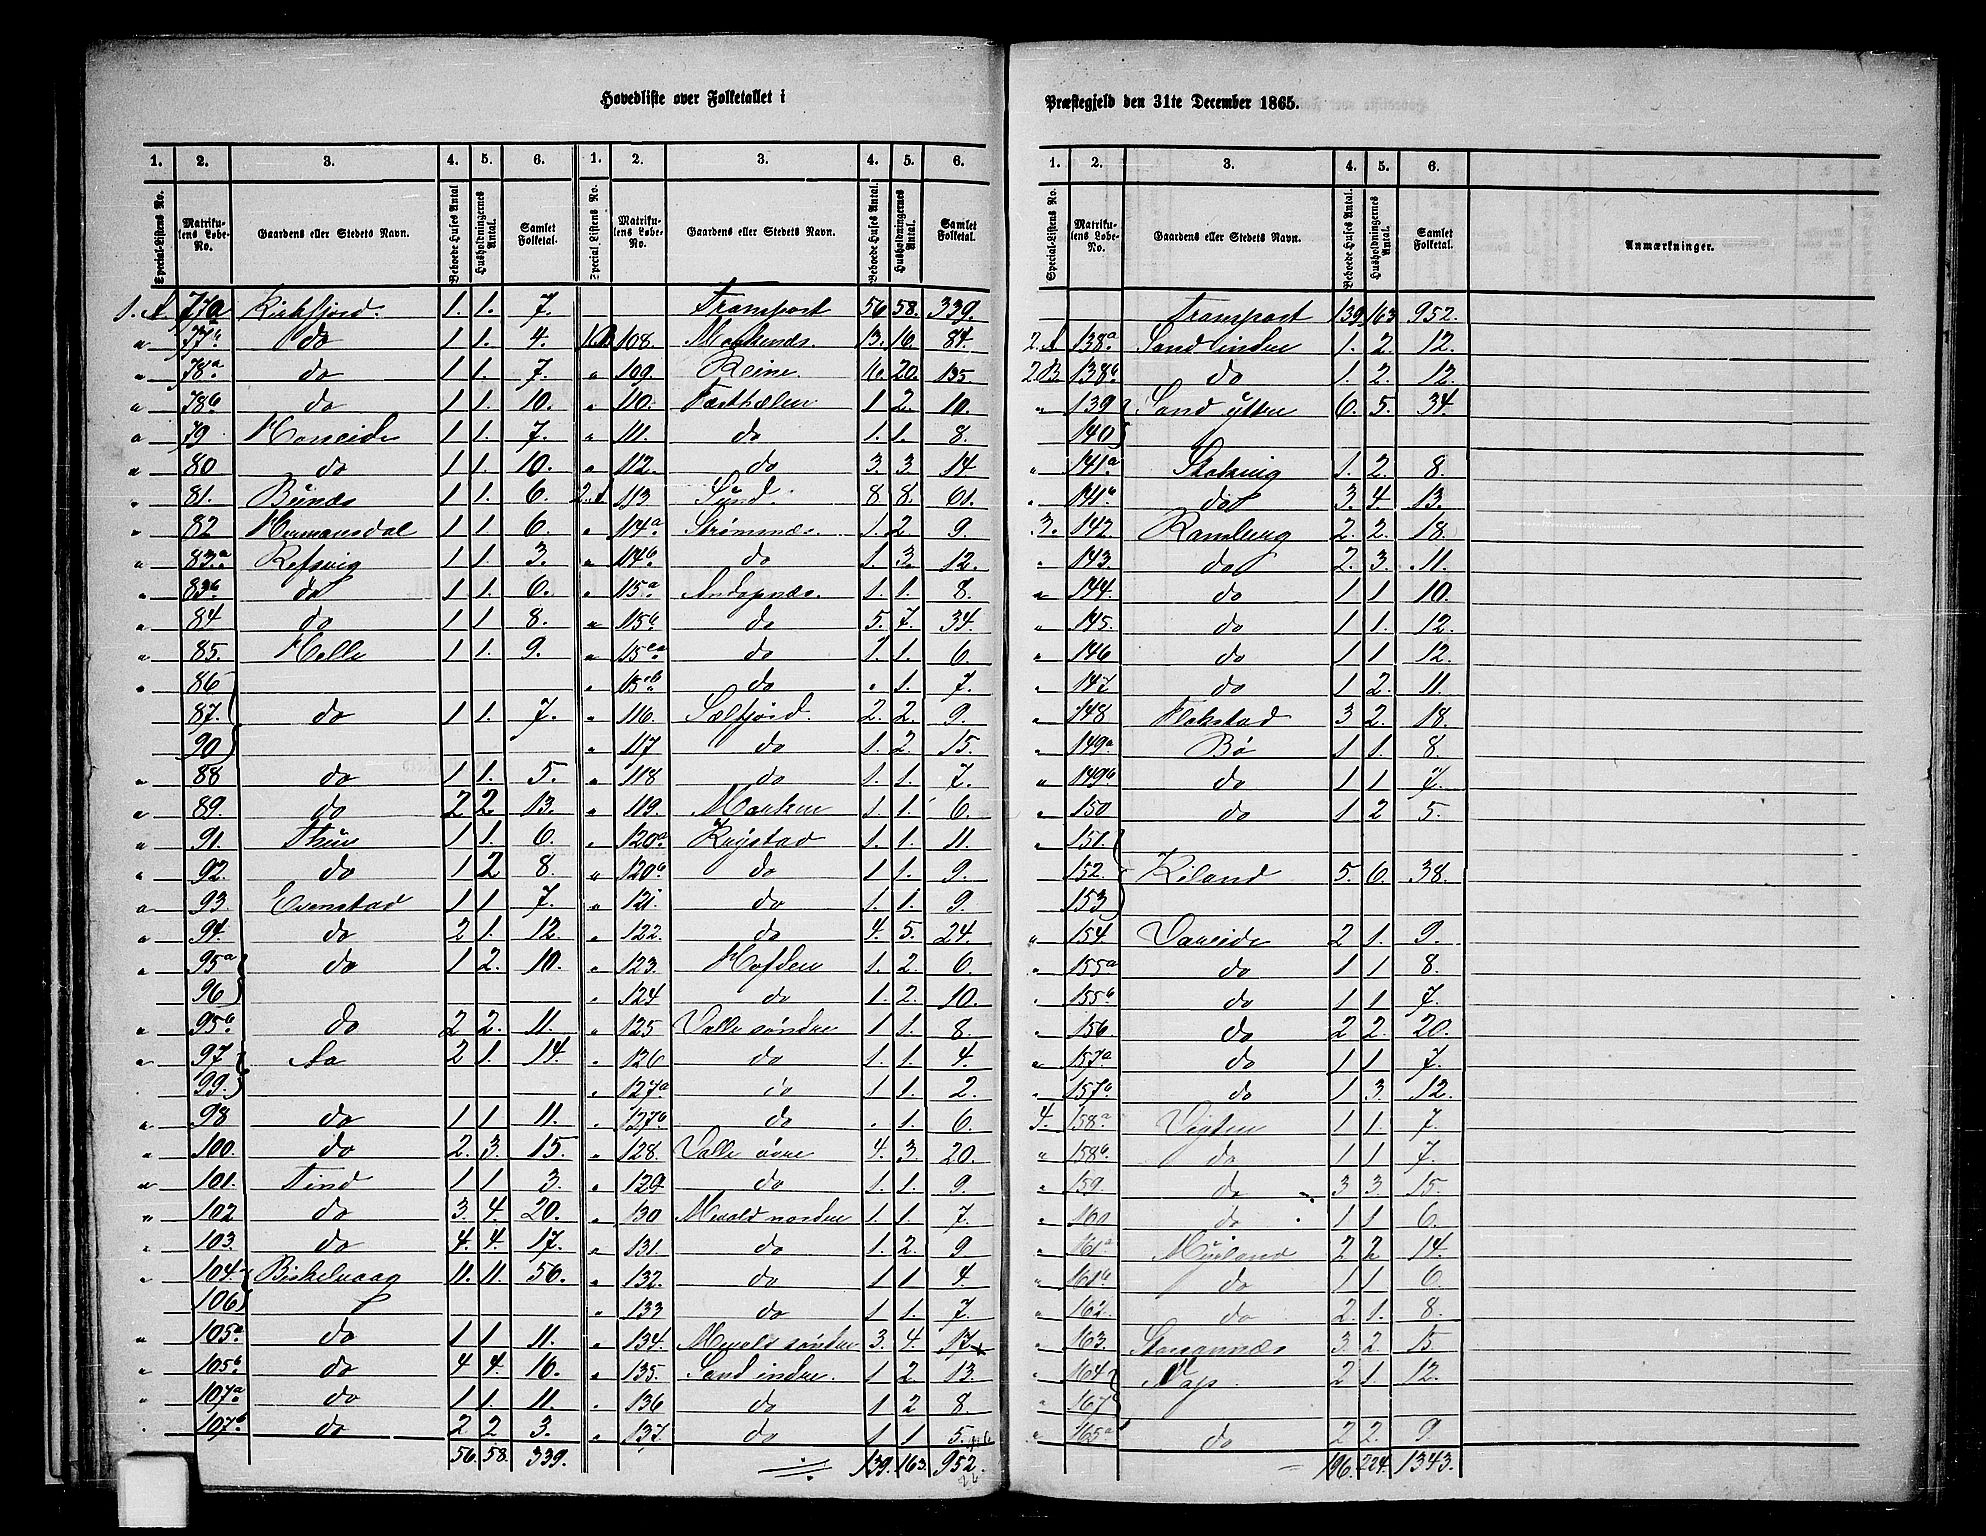 Hovedliste over Folketallet i
1. 2. 3. 4. 5. 6.
Special-Listens No. Matrikulens Løbe-No. Gaardens eller Stedets Navn. Beboede Huses Antal. Husholdningernes Antal. Samlet Folketal.
1. A. 77a Kirkfjord. 1. 1. 7.
" 77b do 1 1. 4.
" 78a. do 1 1. 7.
" 78b do 1 1. 10.
" 79 Horseide 1 1. 7.
" 80 do 1 1. 10.
" 81. Bunæs 1 1. 6.
" 82 Hermansdal 1 1. 6.
" 83a Refsvig 1 1. 3.
" 83b do 1 1. 6.
" 84 do 1 1 8.
" 85. Helle 1 1. 9.
" 86
87. do 1 1. 7.
90
" 88 do 1 1. 5.
" 89. do 2 2. 13.
" 91. Thun 1 1. 6.
" 92. do 1 2 8.
" 93 Evenstad 1 1 7.
" 94. do 2 1. 12.
" 95a do 1 2. 10.
96
" 95b do 2 2. 11.
" 97 Aa 2 1. 14.
99.
" 98 do 1 1 11.
" 100. do 2. 3. 15.
" 101. Tind 1 1 3.
" 102 do 3. 4. 20.
" 103. do 4. 4. 17.
" 104. Biskelvaag 11. 11. 56.
106
" 105a do 1 1 11.
" 105b do 4 4. 16.
" 107a do 1 1. 11.
" 107b do 2 2 3.
56. 58. 339.
1. 2. 3. 4. 5. 6.
Special Listens No. Matrikulens Løbe-No. Gaardens eller Stedets Navn. Beboede Huses Antal. Husholdningernes Antal. Samlet Folketal.
Transport 56 58. 339.
1.B. 108. Moskenæs. 13. 16. 84.
" 109. Reine. 16. 20. 135.
" 110. Festhælen 1 2. 10.
" 111. do 1. 1. 8.
" 112. do 3. 3 14
2.A 113 Sund. 8 8. 61.
" 114a Strømnæs. 1. 2. 9.
" 114b do 1. 3. 12.
" 115a Andopnæs. 1. 1. 8.
" 115b do 5. 7. 34.
" 115ca do 1. 1. 6.
" 115cb do " 1. 7.
" 116. Sælfjord. 2. 2. 9.
" 117 do 1. 2. 15.
" 118. do 1. 1. 7.
" 119. Marken 1. 1. 6.
" 120a Krystad 1. 1. 11.
" 120b do 1 1. 9.
" 121. do 1. 1. 9.
" 122. do 4. 5. 24.
" 123. Hofden 1. 2. 6.
" 124 do 1. 2. 10.
" 125 Volle søndre 1 1. 8.
" 126 do 1. 1. 4.
" 127a do 1 1. 2.
" 127b do " 1. 6.
" 128. Volle øvre 4. 3. 20.
" 129 do 1. 1. 9.
" 130 Mevold nordre 1. 1. 7.
" 131. do 1. 2. 9
" 132. do 1 1. 4.
" 133 do 1 1. 7.
" 134. Mevold søndre 3. 4. 17.
" 135. Sand indre. 1 2. 13.
" 136 do 1 2 8.
" 137. do 1 1 5.
139. 163. 952.
Præstegjeld den 31te December 1865.
1. 2. 3. 4. 5. 6.
Special-Listens No. Matrikulens Løbe-No. Gaardens eller Stedets Navn. Beboede Huses Antal. Husholdningernes Antal. Samlet Folketal. Anmærkninger.
Transport 139 163 952.
2.A 138a Sand indre 1. 2. 12.
2.B. 138b do 1. 2. 12.
" 139 Sand ytter 6. 5. 34.
140
" 141a Skolvig 1. 2. 8.
" 141b do 3. 4. 13.
3. 142. Ramberg 2. 2. 18.
" 143. do 2. 3. 11.
" 144. do 1 1 10.
" 145. do 1 1. 12.
" 146 do 1 1 12.
" 147 do 1 2. 11.
" 148 Flakstad 3 2. 18.
" 149a Bø 1 1. 8.
" 149b do 1 1 7.
" 150 do 1 2 5.
" 151.
152. Kiland 5. 6. 38.
153
" 154. Vareide 2 1. 9.
" 155a do 1 1 8.
" 155b do 1 1 7.
" 156 do 2 2. 20.
" 157a do 1 1 7.
" 157b do 1 3. 12.
4. 158a Vigten 1 1. 7.
" 158b. do 1 1 7.
" 159. do 3 3. 15.
" do 1 1 6.
" 161a Myrland 2 2 14.
" 161b do 1 1 6
" 162. do 2. 1. 8.
" 163. Storrannæs 3. 2. 15
" 164 Nap. 2 1. 12.
" 167
" 165a do 2 2. 9.
196. 224. 1343.